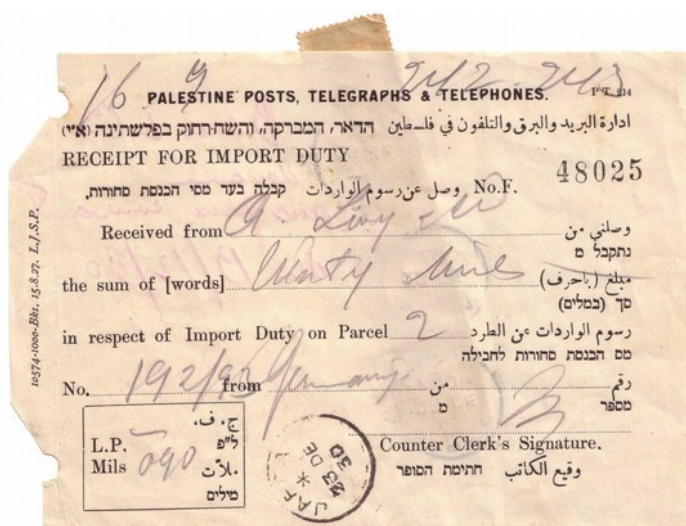 16 9 242-243
PALESTINE POSTS, TELEGRAPHS & TELEPHONES. P.T. 234
ادارة البريد والبرق والتلفون في فلسطين הדאר, המברקה, והשח-רחוק בפלשתינה (א״י)
RECEIPT FOR IMPORT DUTY
48025
No.F. وصل عن رسوم الواردات קבלה בעד מסי הכנסת סחורות.
Received from وصلني من
נתקבל מ
the sum of [words] مبلغ (باحرف)
סך (במלים)
in respect of Import Duty on Parcel 2 رسوم الواردات عن الطرد
מס הכנסת סחורות לחבילה
No. 192/93 from Germany من رقم
מ מספר
ج. ف.
L.P. ל״פ
Mils 090 ملات
מילים
JAF
23 DE
30
Counter Clerk's Signature.
وقيع الكاتب חתימת הסופר
10574-1000-Bks. 15.8.27. L./J.S.P.